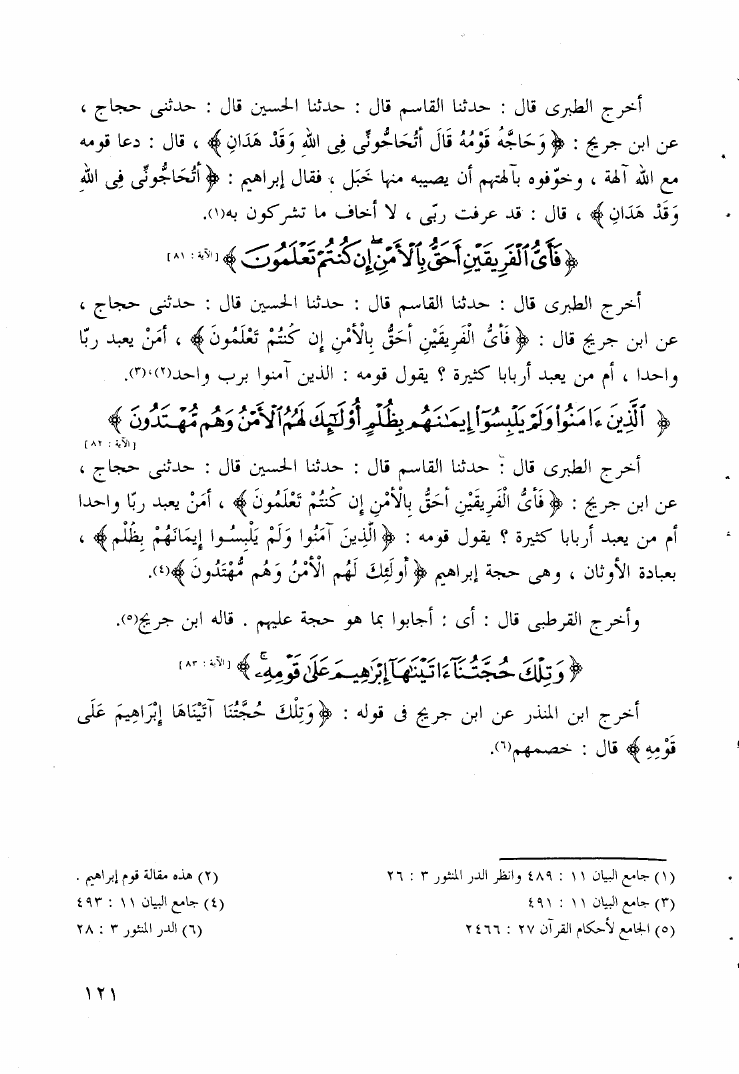 أخرج الطبرى قال : حدثنا القاسم قال : حدثنا الحسين قال : حدثنى حجاج ،
عن ابن جريج : ﴿ وَحَاجَّهُ قَوْمُهُ قَالَ أَتُحَاجُّونِّى فِى اللهِ وَقَدْ هَدَانِ ﴾ ، قال : دعا قومه
مع الله آلهة ، وخوّفوه بآلهتهم أن يصيبه منها خَبَل ، فقال إبراهيم : ﴿ أَتُحَاجُّونِّى فِى اللهِ
وَقَدْ هَدَانِ ﴾ ، قال : قد عرفت ربّى ، لا أخاف ما تشركون به(١).
﴿ فَأَىُّ ٱلْفَرِيقَيْنِ أَحَقُّ بِٱلْأَمْنِ ۖ إِن كُنتُمْ تَعْلَمُونَ ﴾ [الآية : ٨١]
أخرج الطبرى قال : حدثنا القاسم قال : حدثنا الحسين قال : حدثنى حجاج ،
عن ابن جريج قال : ﴿ فَأَىُّ الْفَرِيقَيْنِ أَحَقُّ بِالْأَمْنِ إِن كُنتُمْ تَعْلَمُونَ ﴾ ، أمَنْ يعبد ربّا
واحدا ، أم من يعبد أربابا كثيرة ؟ يقول قومه : الذين آمنوا برب واحد(٢)،(٣).
﴿ ٱلَّذِينَ ءَامَنُوا۟ وَلَمْ يَلْبِسُوٓا۟ إِيمَـٰنَهُم بِظُلْمٍ أُو۟لَـٰٓئِكَ لَهُمُ ٱلْأَمْنُ وَهُم مُّهْتَدُونَ ﴾
[الآية : ٨٢]
أخرج الطبرى قال : حدثنا القاسم قال : حدثنا الحسين قال : حدثنى حجاج ،
عن ابن جريج : ﴿ فَأَىُّ الْفَرِيقَيْنِ أَحَقُّ بِالْأَمْنِ إِن كُنتُمْ تَعْلَمُونَ ﴾ ، أمَنْ يعبد ربّا واحدا
أم من يعبد أربابا كثيرة ؟ يقول قومه : ﴿ الَّذِينَ آمَنُوا وَلَمْ يَلْبِسُوا إِيمَانَهُمْ بِظُلْمٍ ﴾ ،
بعبادة الأوثان ، وهى حجة إبراهيم ﴿ أُولَئِكَ لَهُم الْأَمْنُ وَهُم مُّهْتَدُونَ ﴾(٤).
وأخرج القرطبى قال : أى : أجابوا بما هو حجة عليهم . قاله ابن جريج(٥).
﴿ وَتِلْكَ حُجَّتُنَآ ءَاتَيْنَـٰهَآ إِبْرَٰهِيمَ عَلَىٰ قَوْمِهِۦ ۚ ﴾ [الآية : ٨٣]
أخرج ابن المنذر عن ابن جريج فى قوله : ﴿ وَتِلْكَ حُجَّتُنَا آتَيْنَاهَا إِبْرَاهِيمَ عَلَى
قَوْمِهِ ﴾ قال : خصمهم(٦).
(١) جامع البيان ١١ : ٤٨٩ وانظر الدر المنثور ٣ : ٢٦
(٢) هذه مقالة قوم إبراهيم .
(٣) جامع البيان ١١ : ٤٩١
(٤) جامع البيان ١١ : ٤٩٣
(٥) الجامع لأحكام القرآن ٢٧ : ٢٤٦٦
(٦) الدر المنثور ٣ : ٢٨
١٢١